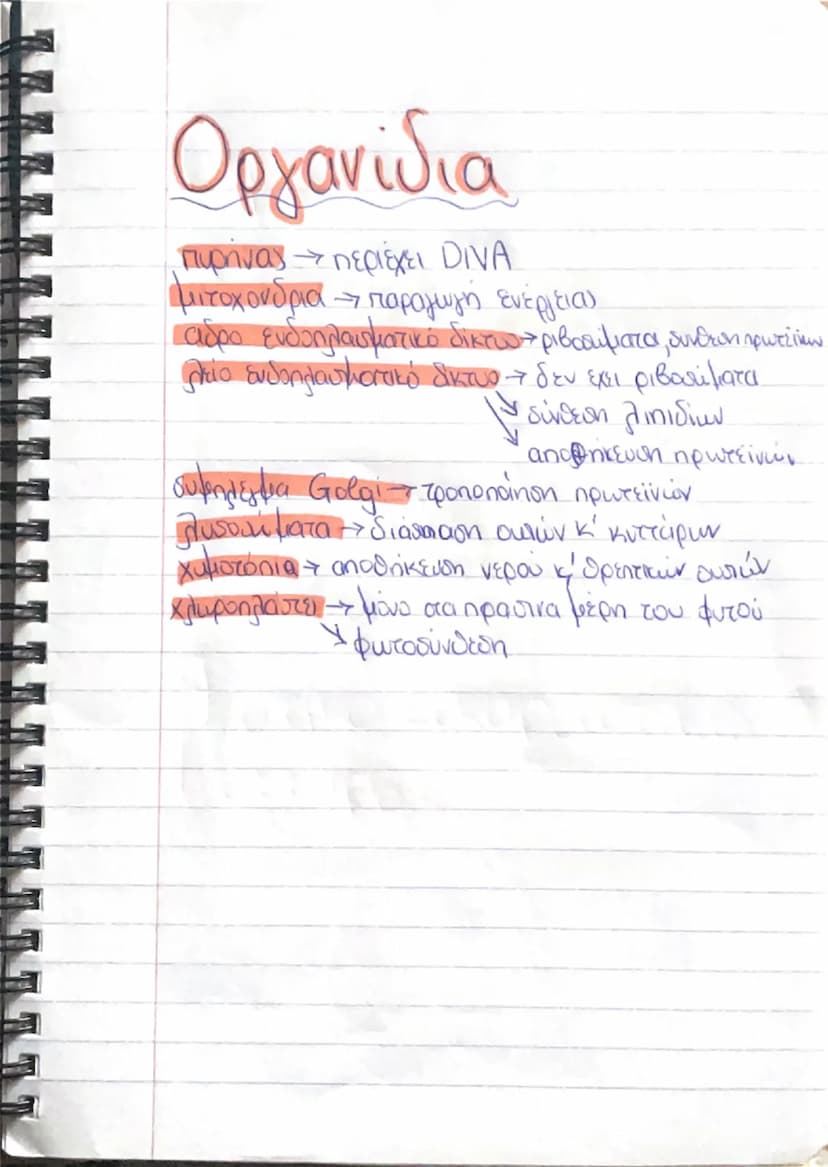 Οργανίδια
πυρήνας → περιέχει DNA
μιτοχονδρια → παραγωγή ενέργειας
αδρο ενδοπλασματικό δίκτυο → ριβοσώματα, συνθεση πρωτεϊνων
λείο ενδοπλασματικό δικτυο → δεν εχει ριβοσώματα
↘ σύνθεση λιπιδίων
↘ αποθήκευση πρωτεϊνών
συμπλεγμα Golgi → τροποποίηση πρωτεϊνών
λυσοσώματα → διάσπαση ουσιών κ' κυττάρων
χυμοτόπια → αποθήκευση νερού κ' θρεπτικών ουσιών
χλωροπλάστες → μόνο στα πρασινα μέρη του φυτού
↘ φωτοσύνθεση